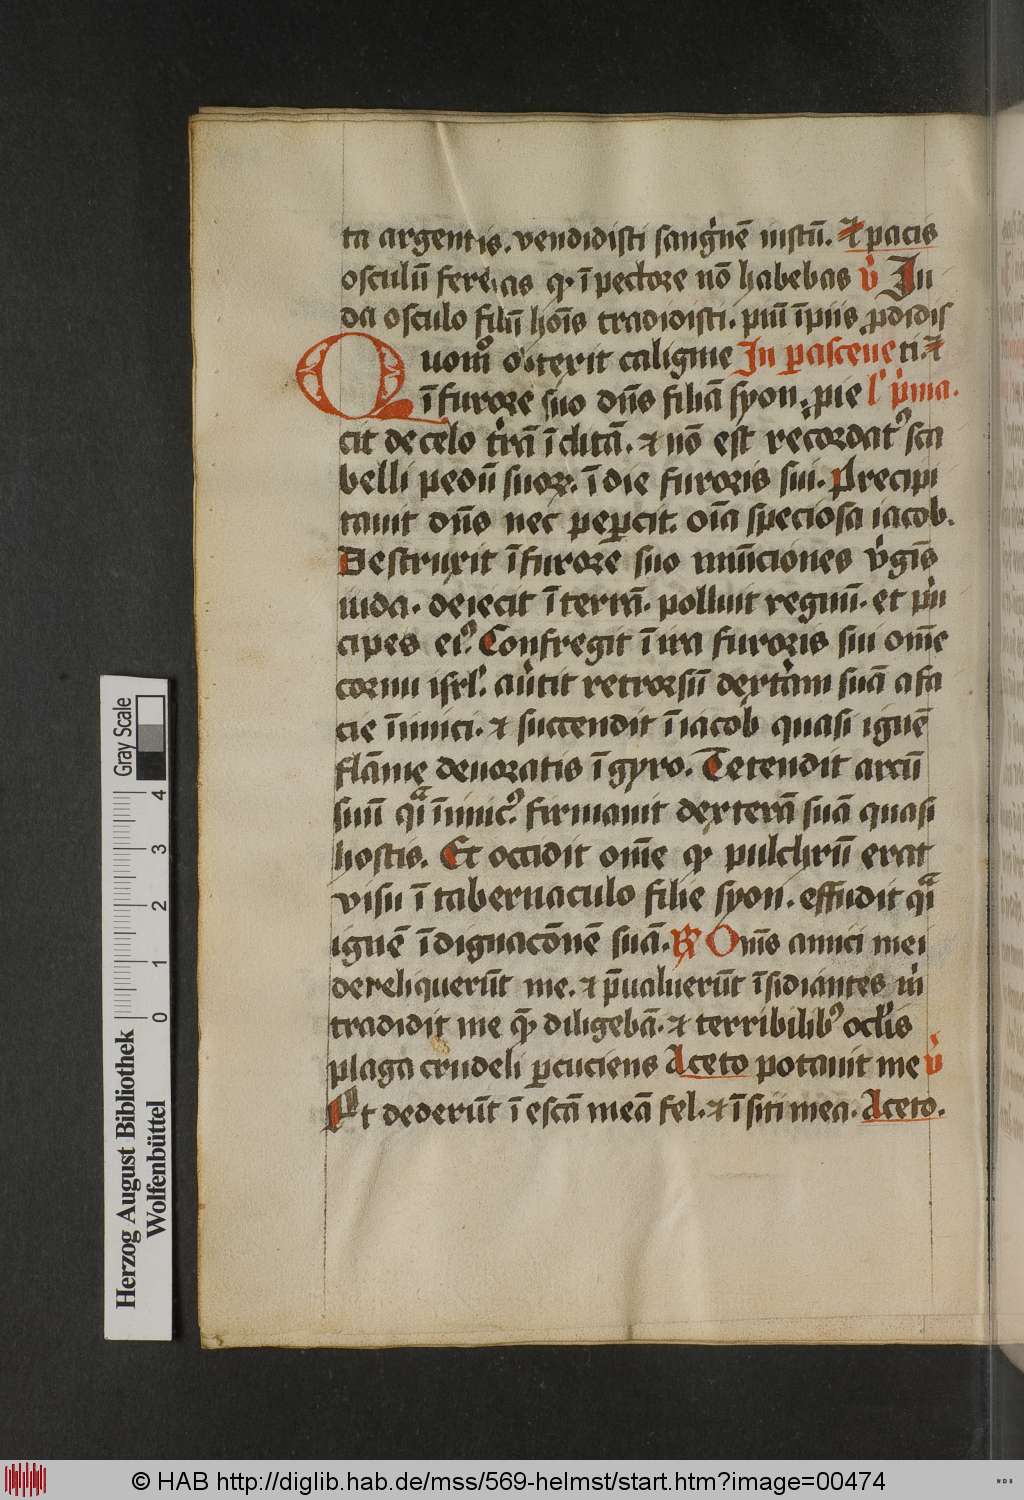 ta argentis. vendidisti sangͥnē iustū. ⁊ pacis
osculū ferebas qͥ ī pectore nō habebas v̉ Iu
da osculo filiū hoīs tradidisti. piū īpiis ꝓdidis
Quomͦ obtexit caligine In ꝑasceue ti. ⁊
ī furore suo dn̄s filiā syon. pie l' pͥma.
cit de celo tr̉ā īclitā. ⁊ nō est recordatꝰ sca
belli pedū suoꝝ. ī die furoris sui. Precipi
tauit dn̄s nec peꝑcit. oīa speciosa iacob.
Destruxit ī furore suo mūīciones v̉gīs
iuda. deiecit ī terrā. polluit regnū. et pͥn
cipes eiꝰ. Confregit ī ira furoris sui om̄e
cornu isrl'. aủtit retrorsū dext̉am suā a fa
cie īimici. ⁊ succendit ī iacob quasi ignē
flāmę deuoratis ī gyro. Tetendit arcū
suū qͣi īimicꝰ. firmauit dexterā suā quasi
hostis. Et occidit om̄e qͥ pulchrū erat
visu ī tabernaculo filie syon. effudit qͣi
ignē īdignacōnē suā. ꝶ Om̄s amici mei
dereliquerūt me. ⁊ p̄ualuerūt īsidiantes m̉
tradidit me quē diligebā. ⁊ terribilibꝰ ocl'is
plaga crudeli ꝑcuciens Aceto potauit me v̉
Et dederūt ī escā meā fel. ⁊ ī siti mea. Aceto.
Herzog August Bibliothek
Wolfenbüttel
0 1 2 3 4
Gray Scale
© HAB http://diglib.hab.de/mss/569-helmst/start.htm?image=00474